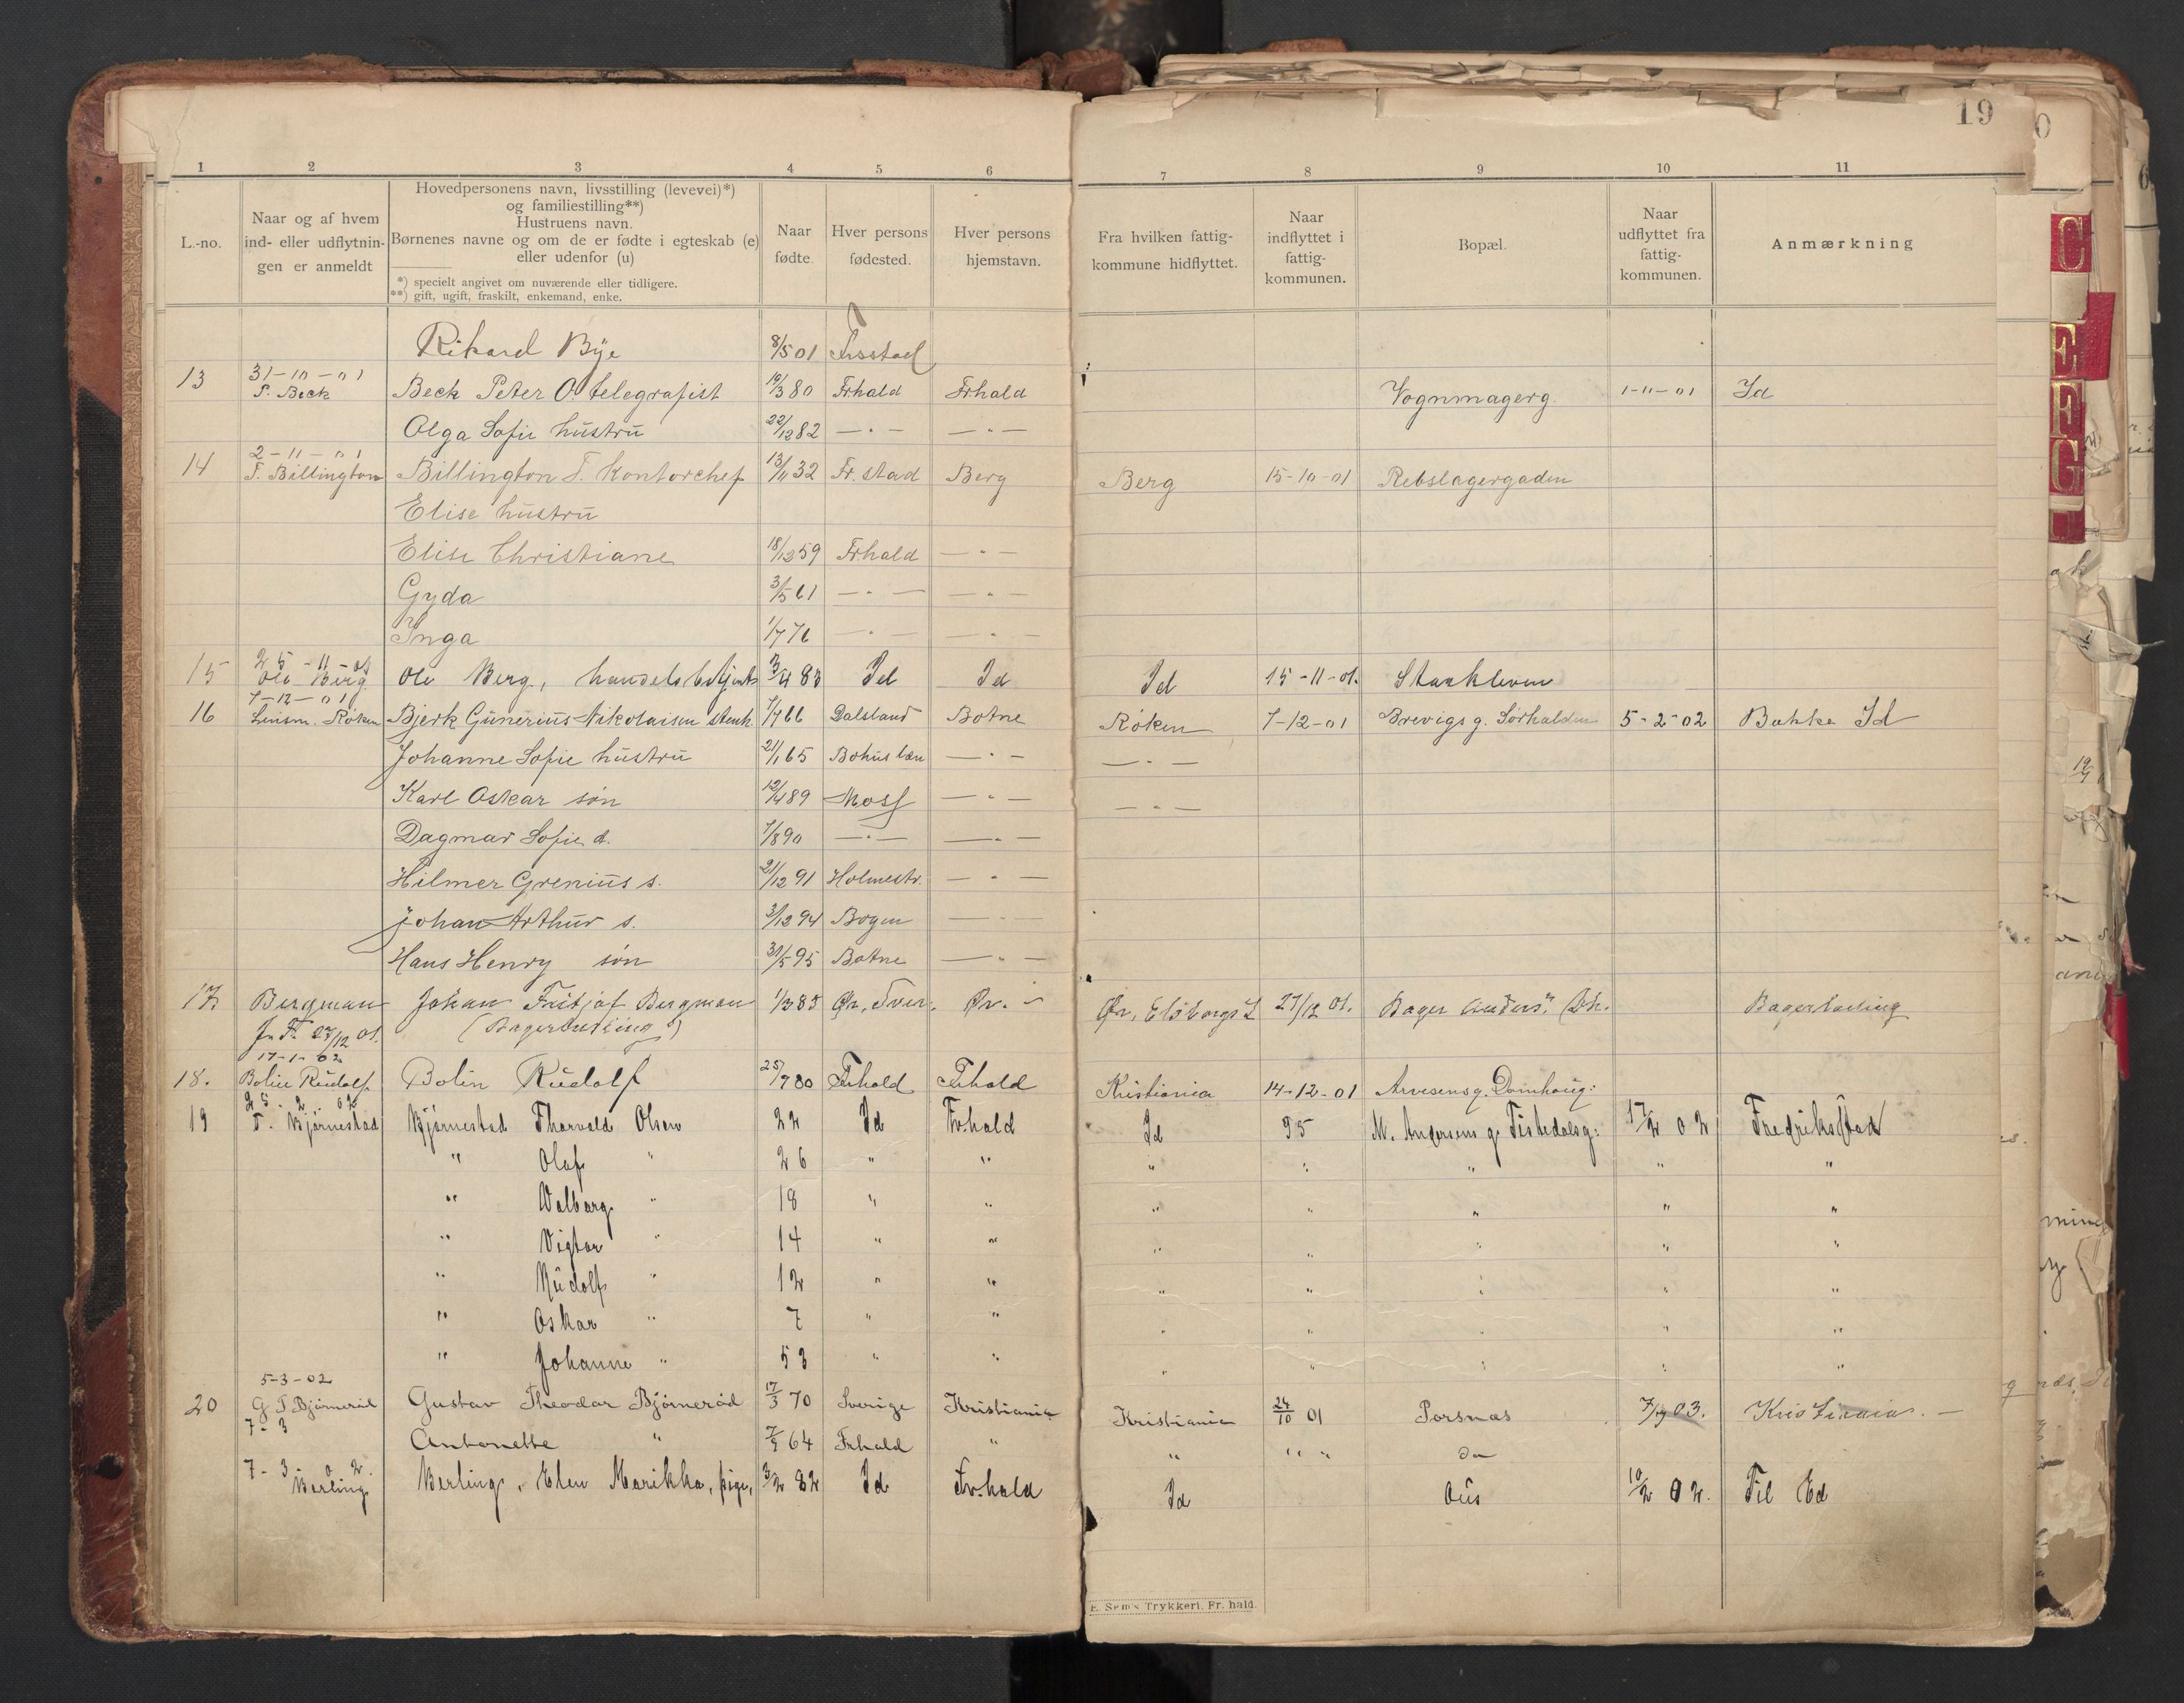 19
1 2 3 4 5 6 7 8 9 10 11
L.-no.
Naar og af hvem
ind- eller udflytnin-
gen er anmeldt
Hovedpersonens navn, livsstilling (levevei)*)
og familiestilling**)
Hustruens navn.
Børnenes navne og om de er fødte i egteskab (e)
eller udenfor (u)
*) specielt angivet om nuværende eller tidligere.
**) gift, ugift, fraskilt, enkemand, enke.
Naar
fødte.
Hver persons
fødested.
Hver persons
hjemstavn.
Fra hvilken fattig-
kommune hidflyttet.
Naar
indflyttet i
fattig-
kommunen.
Bopæl.
Naar
udflyttet fra
fattig-
kommunen.
Anmærkning
Rikard Bye 8/5 01 Frsstad
31-10-01
13 P. Beck Beck Peter O telegrafist 19/3 80 Frhald Frhald Vognmagerg. 1-11-01 Id
Olga Sofie hustru 22/12 82 — " — — " —
2-11-01
14 T. Billington Billington T. Kontorchef 13/11 32 Fr.stad Berg Berg 15-10-01 Rebslagergaden
Elise hustru
Elise Christiane 18/12 59 Frhald — " —
Gyda 3/5 61 — " — — " —
Inga 1/7 76 — " — — " —
25-11-01
15 Ole Berg Ole Berg, handelsbetjent 3/4 83 Id Id Id 15-11-01. Stankleven
7-12-01
16 Lensm. Røken Bjerk Gunerius Nikolaisen stenh. 7/7 66 Dalsland Botne Røken 7-12-01 Brevigs g. Sørhalden 5-2-02 Bakke Id
Johanne Sofie hustru 21/1 65 Bohus læn — " — — " —
Karl Oskar søn 12/4 89 Moss — " — — " —
Dagmar Sofie d. 7/8 90 — " — — " —
Hilmer Grenius s. 21/12 91 Holmestr. — " —
Johan Arthur s. 3/12 94 Bogen — " —
Hans Henry søn 31/5 95 Botne — " —
17 Bergman Johan Fritjof Bergman 1/3 85 Ør, Sver. Ør. " Ør, Elsborgs L 27/12 01. Bager Anders. Bagerlærling
J. F. 27/12 01. (Bagerlærling)
17-1-02
18. Bolin Rudolf Bolin Rudolf 25/7 80 Frhald Frhald Kristiania 14-12-01 Arvesens g. Damhaug:
25-2-02
19 T. Bjørnestad Bjørnestad Thorvald Olsen 22 Id Frhald Id 95 M. Andersens g. Tistedalsg: 17/2 02 Fredriksstad
" Olaf " 26 " " " " " " "
" Valborg " 18 " " " " " " "
" Vigtor " 14 " " " " " " "
" Rudolf " 12 " " " " " " "
" Oskar " 7 " " " " " " "
" Johanne " 53 " " " " " " "
5-3-02
20 G T Bjørnerød Gustav Theodor Bjørnerød 17/3 70 Sverige Kristiania Kristiania 24/10 01 Porsnæs 03. Kristiania. —
7-3 Antonette " 7/9 64 Frhald " " " " do
7-3-02.
Berling Berling, Elen Marikka, pige, 3/2 82 Id Frhald Id Øus 10/2 02. Til Ed
E. Sem's Trykkeri, Fr. hald.
C
E
F
G